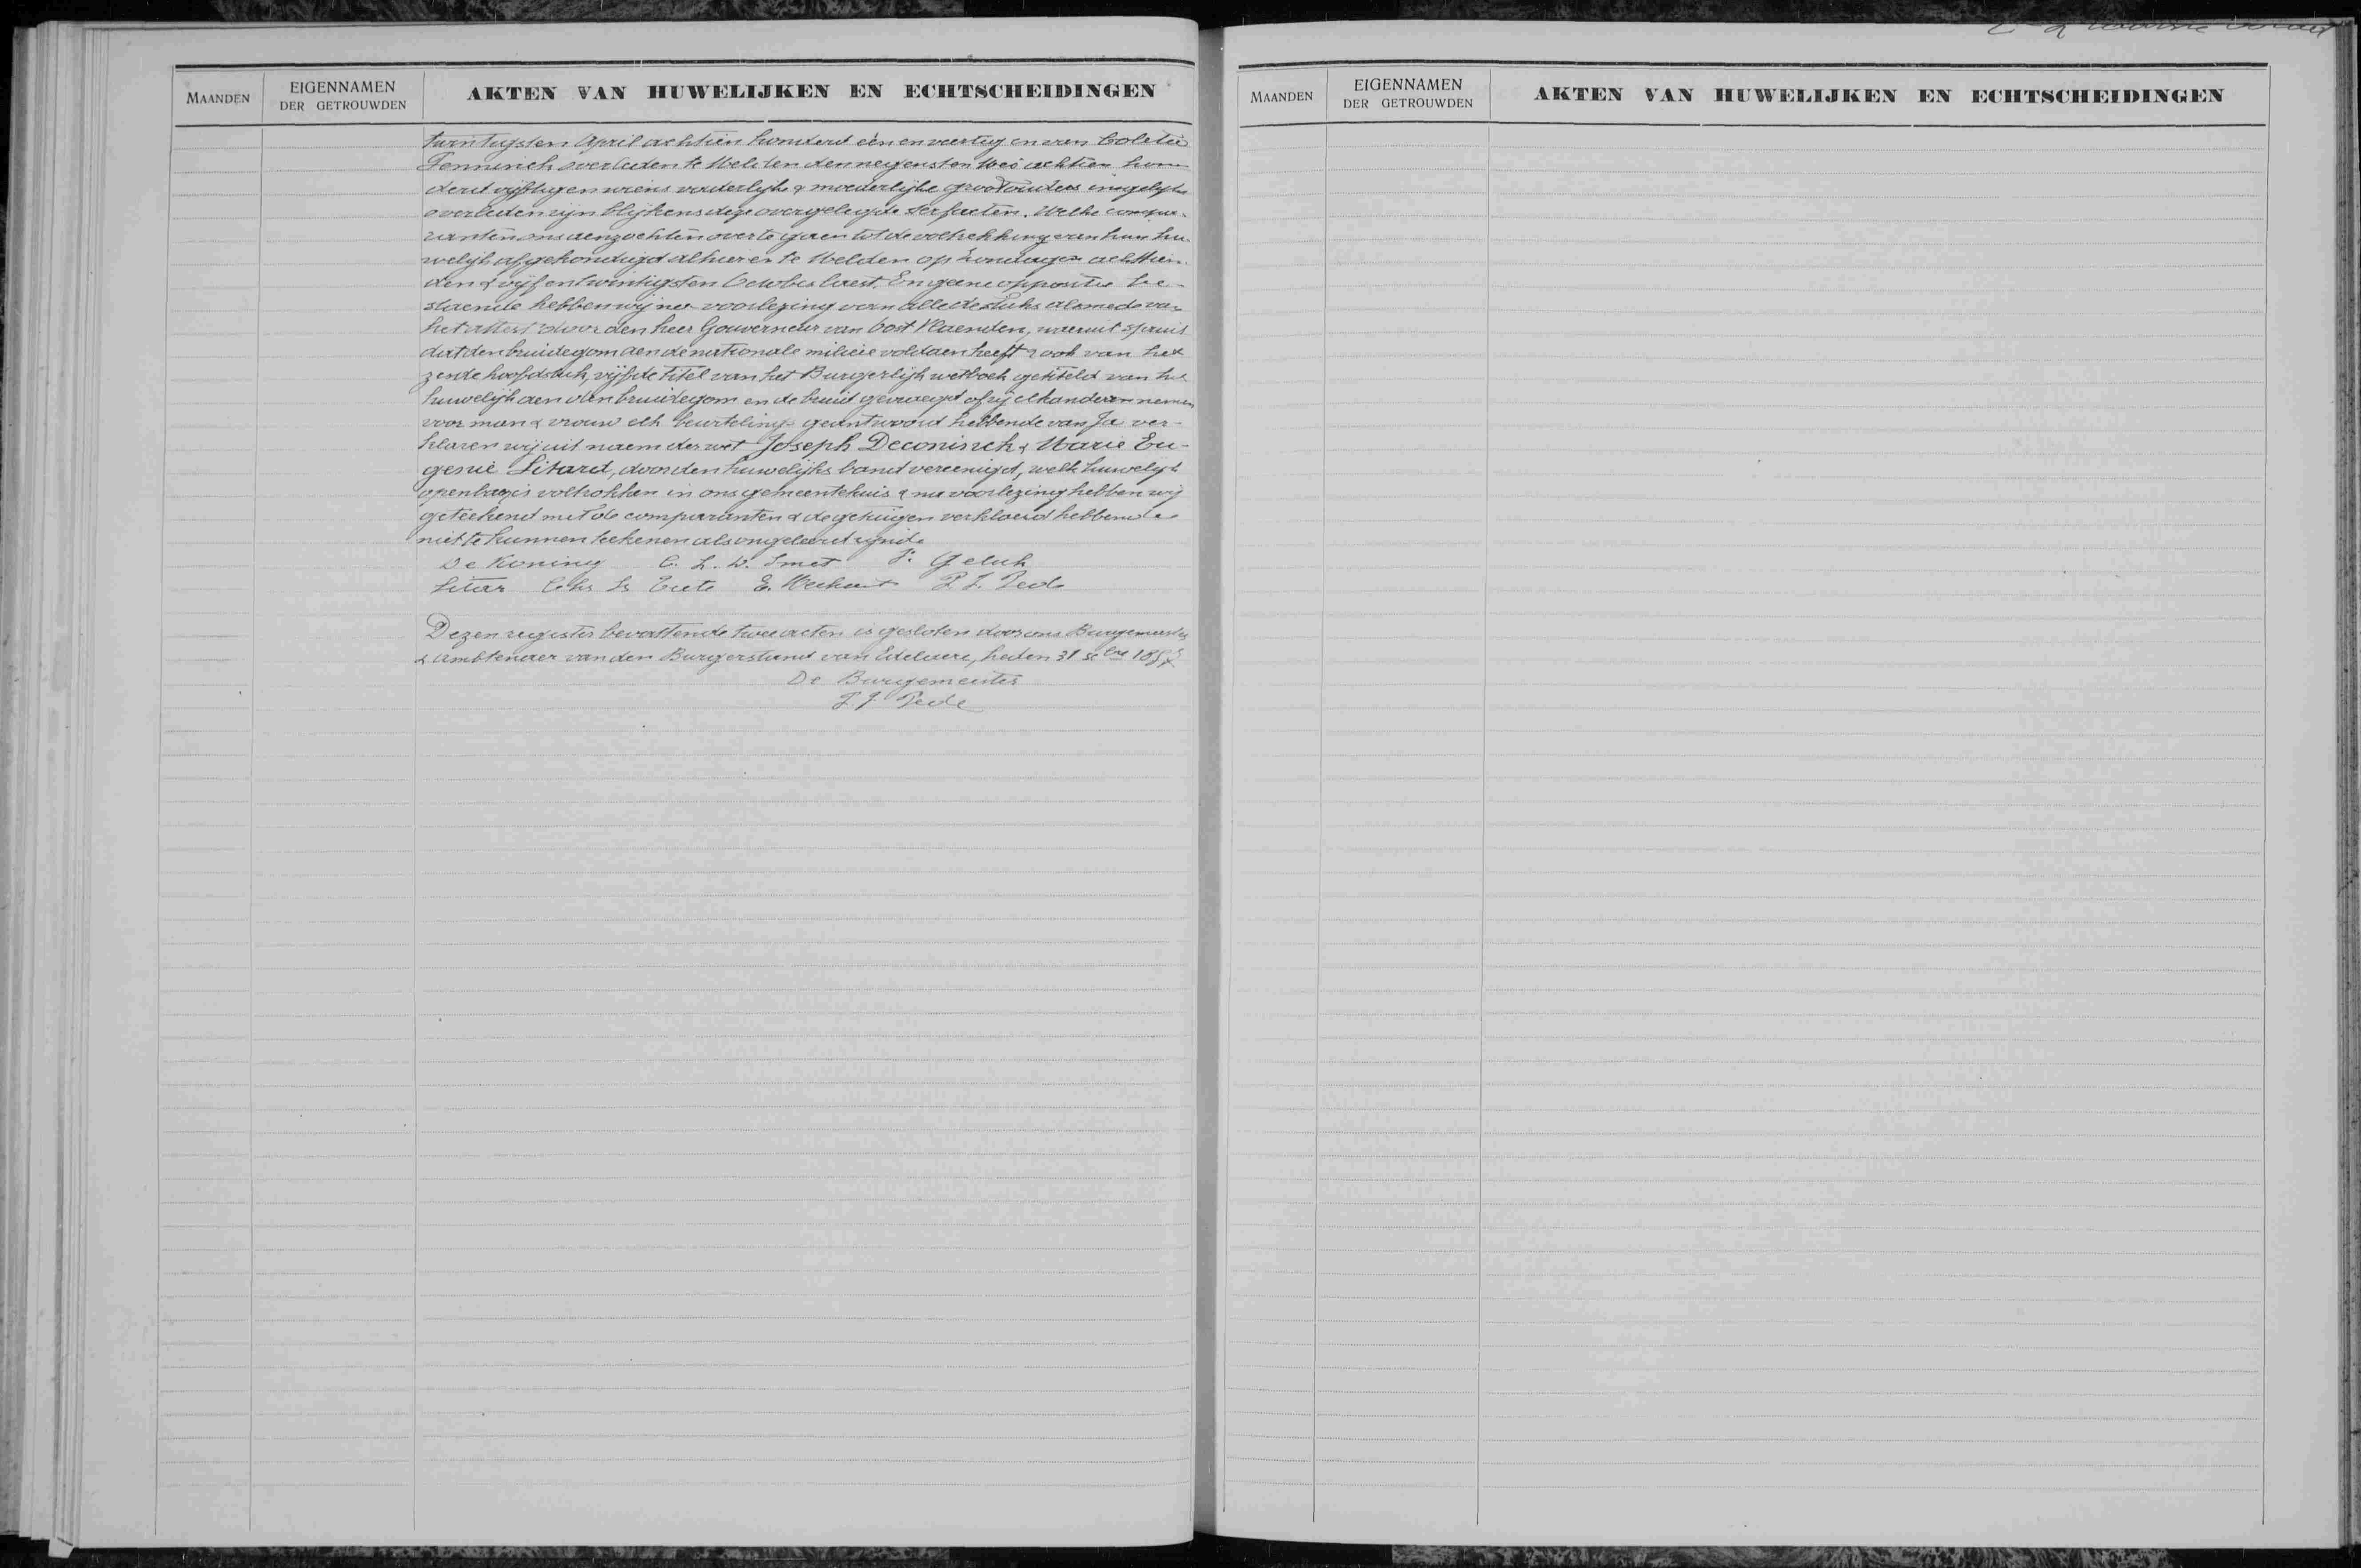 MAANDEN
EIGENNAMEN
DER GETROUWDEN
AKTEN VAN HUWELIJKEN EN ECHTSCHEIDINGEN
twintigsten April achtien honderd eén en veertig en van Coletta
Fenninck overleden te Welden den negensten Meÿ achtien hon
derd vijftig en wiens vaderlijke & moederlijke grootouders insgelijks
overleden zijn blijkens deze overgelegde 
ranten ons aenzochten over te gaen tot de voltrekking van hun hu
welijk afgekondigd alhier en te Welden op zondagen achttien
den & vijf en twintigsten October laest. En geene oppositie be-
staende hebben wij na voorlezing van alle de stuks alsmede van
het attest door den heer Gouverneur van Oost Vlaendren, waeruit spruit
dat den bruidegom aen de nationale milicie voldaen heeft & ook van het
zesde hoofdstuk, vijfde titel van het Burgerlijk wetboek getiteld van het
huwelijk aen den bruidegom en de bruid gevraegd of zij elkanderen nemen
voor man & vrouw elk beurtelings geantwoord hebbende van Ja ver-
klaren wij uit naem der wet Joseph Deconinck & Marie Eu-
genie Litard, door den huwelijks band vereenigd, welk huwelijk
openbaer is voltrokken in ons gemeentehuis & na voorlezing hebben wij
geteekend met de comparanten & de getuigen verklaerd hebbende
niet te kunnen teekenen als ongeleerd zijnde
De Koning C. L. D. Smet F. Geluk
Litar P. J. Pede
Dezen register bevattende twee acten is gesloten door ons Burgemeester
& Ambtenaer van den Burgerstand van Edelaere, heden 31
De Burgemeester
P. J. Pede
MAANDEN
EIGENNAMEN
DER GETROUWDEN
AKTEN VAN HUWELIJKEN EN ECHTSCHEIDINGEN